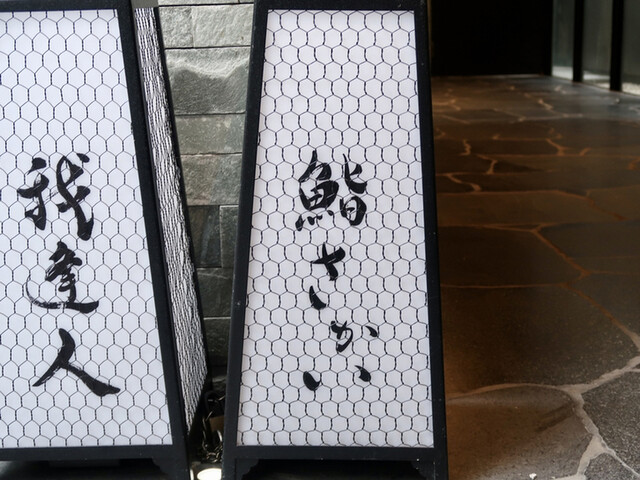 我逢人
鮨さかい